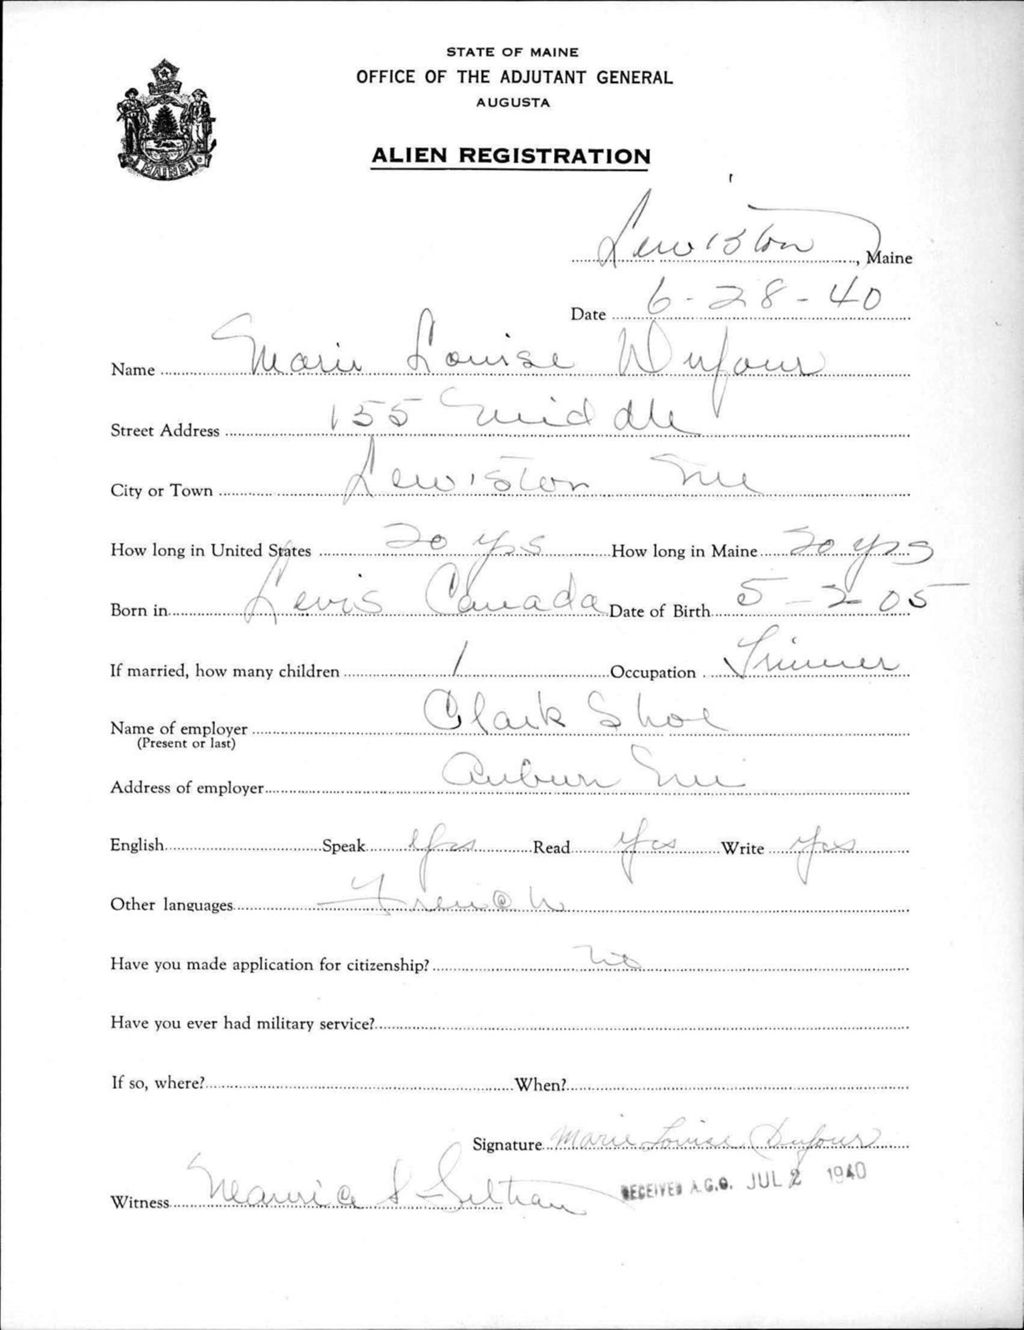 STATE OF MAINE
OFFICE OF THE ADJUTANT GENERAL
AUGUSTA
ALIEN REGISTRATION
MAINE
Lewiston, Maine
Date 6-28-40
Name Marie Louise Dufour
Street Address 155 Middle
City or Town Lewiston Me
How long in United States 20 yrs How long in Maine 20 yrs
Born in Levis Canada Date of Birth 5-2-05
If married, how many children 1 Occupation Trimmer
Name of employer Clark Shoe
(Present or last)
Address of employer Auburn Me
English Speak Yes Read Yes Write Yes
Other languages French
Have you made application for citizenship? No
Have you ever had military service?
If so, where? When?
Signature Marie Louise Dufour
Witness Maurice
RECEIVED A.G.O. JUL 2 1940